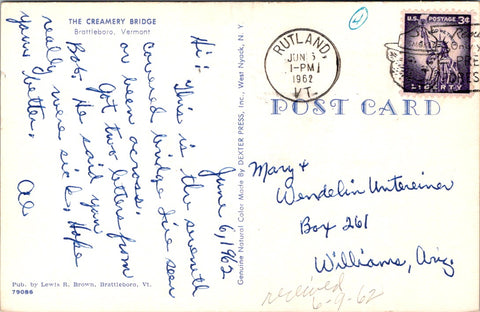 THE CREAMERY BRIDGE
Brattleboro, Vermont
June 6, 1962
Hi: This is the seventh
covered bridge I've seen
or been across.
Got two letters from
Bob. He said you
really were sick. Hope
you're better.
Al
Pub. by Lewis R. Brown, Brattleboro, Vt.
79086
Genuine Natural Color Made By DEXTER PRESS, Inc., West Nyack, N. Y.
4
RUTLAND,
JUN 6
1-PM
1962
VT.
U.S. POSTAGE 3¢
LIBERTY
POST CARD
Mary &
Wendelin Untereiner
Box 261
Williams, Ariz.
received
6-9-62